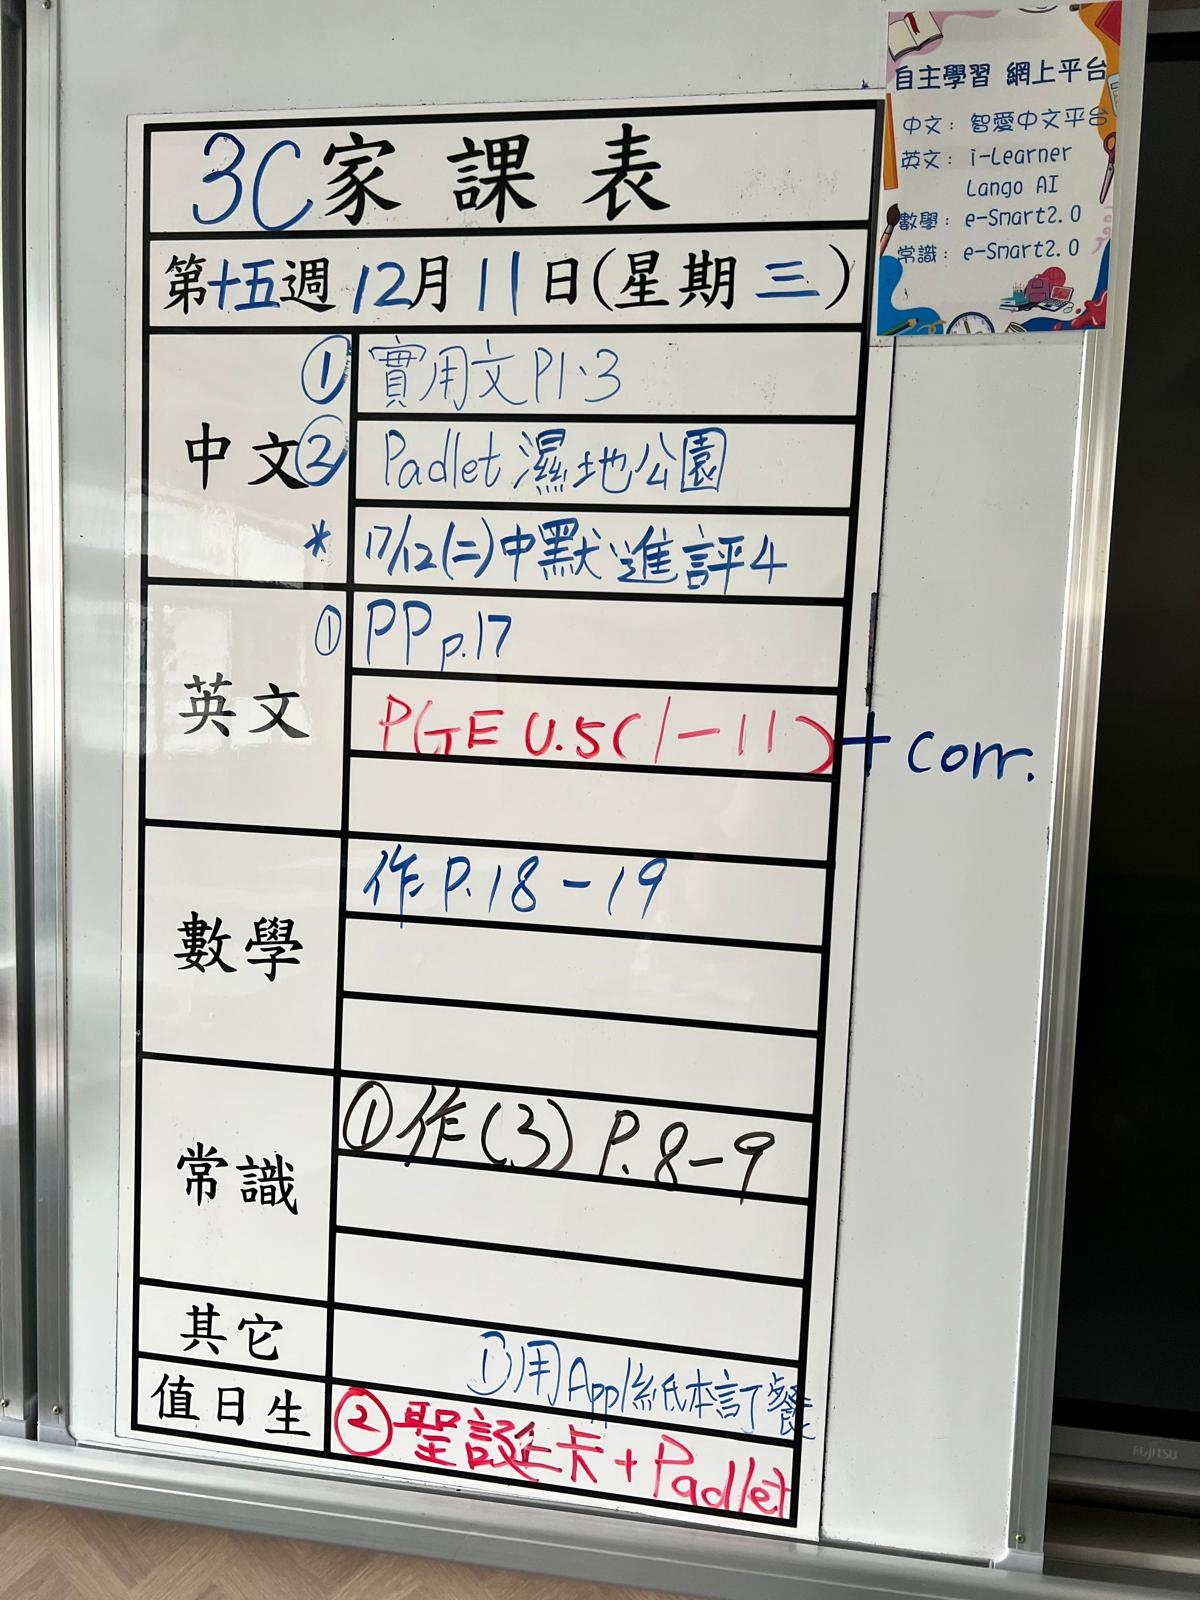 自主學習 網上平台
中文： 智愛中文平台
英文： i-Learner
Lango AI
數學： e-Smart2.0
常識： e-Smart2.0
3C家課表
第十五週 12月11日(星期三)
中文
① 實用文P1-3
② Padlet 濕地公園
* 17/12(二)中默進評4
英文
① PP p.17
PGE U.5(1-11)+corr.
數學
作P.18-19
常識
①作(3) P.8-9
其它
①用App/紙本訂餐
值日生
②聖誕卡+Padlet
FUJITSU